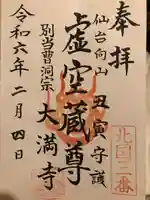 奉拝
仙台向山 丑寅守護
虚空蔵尊
別当曹洞宗 大満寺
令和六年二月四日
北国三番